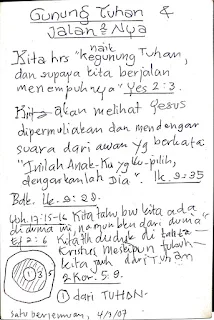 Gunung Tuhan &
Jalan2 Nya
naik
Kita hrs "kegunung Tuhan,
dan supaya kita berjalan
menempuhnya" Yes 2:3.
Kita akan melihat Yesus
dipermuliakan dan mendengar
suara dari awan yg berkata:
"Inilah Anak-Ku yg Ku-pilih,
dengarkanlah Dia". lk. 9:35
Bdk. lk. 9:28.
Yoh. 17:15-16 Kita tahu bw kita ada
di dunia ini, namun bkn dari dunia
Ef 2:6 Kita tlh duduk di
Kristus meskipun tubuh
kita jauh dari Tuhan
2 Kor. 5:9.
1 3 5
1 dari TUHAN
satu berjemuan, 4/7/07